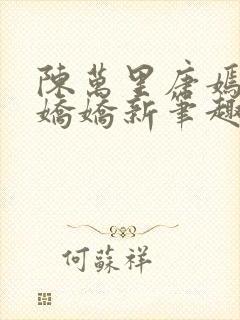 陳萬里唐嫣
嬌嬌新筆趣
何蘇祥